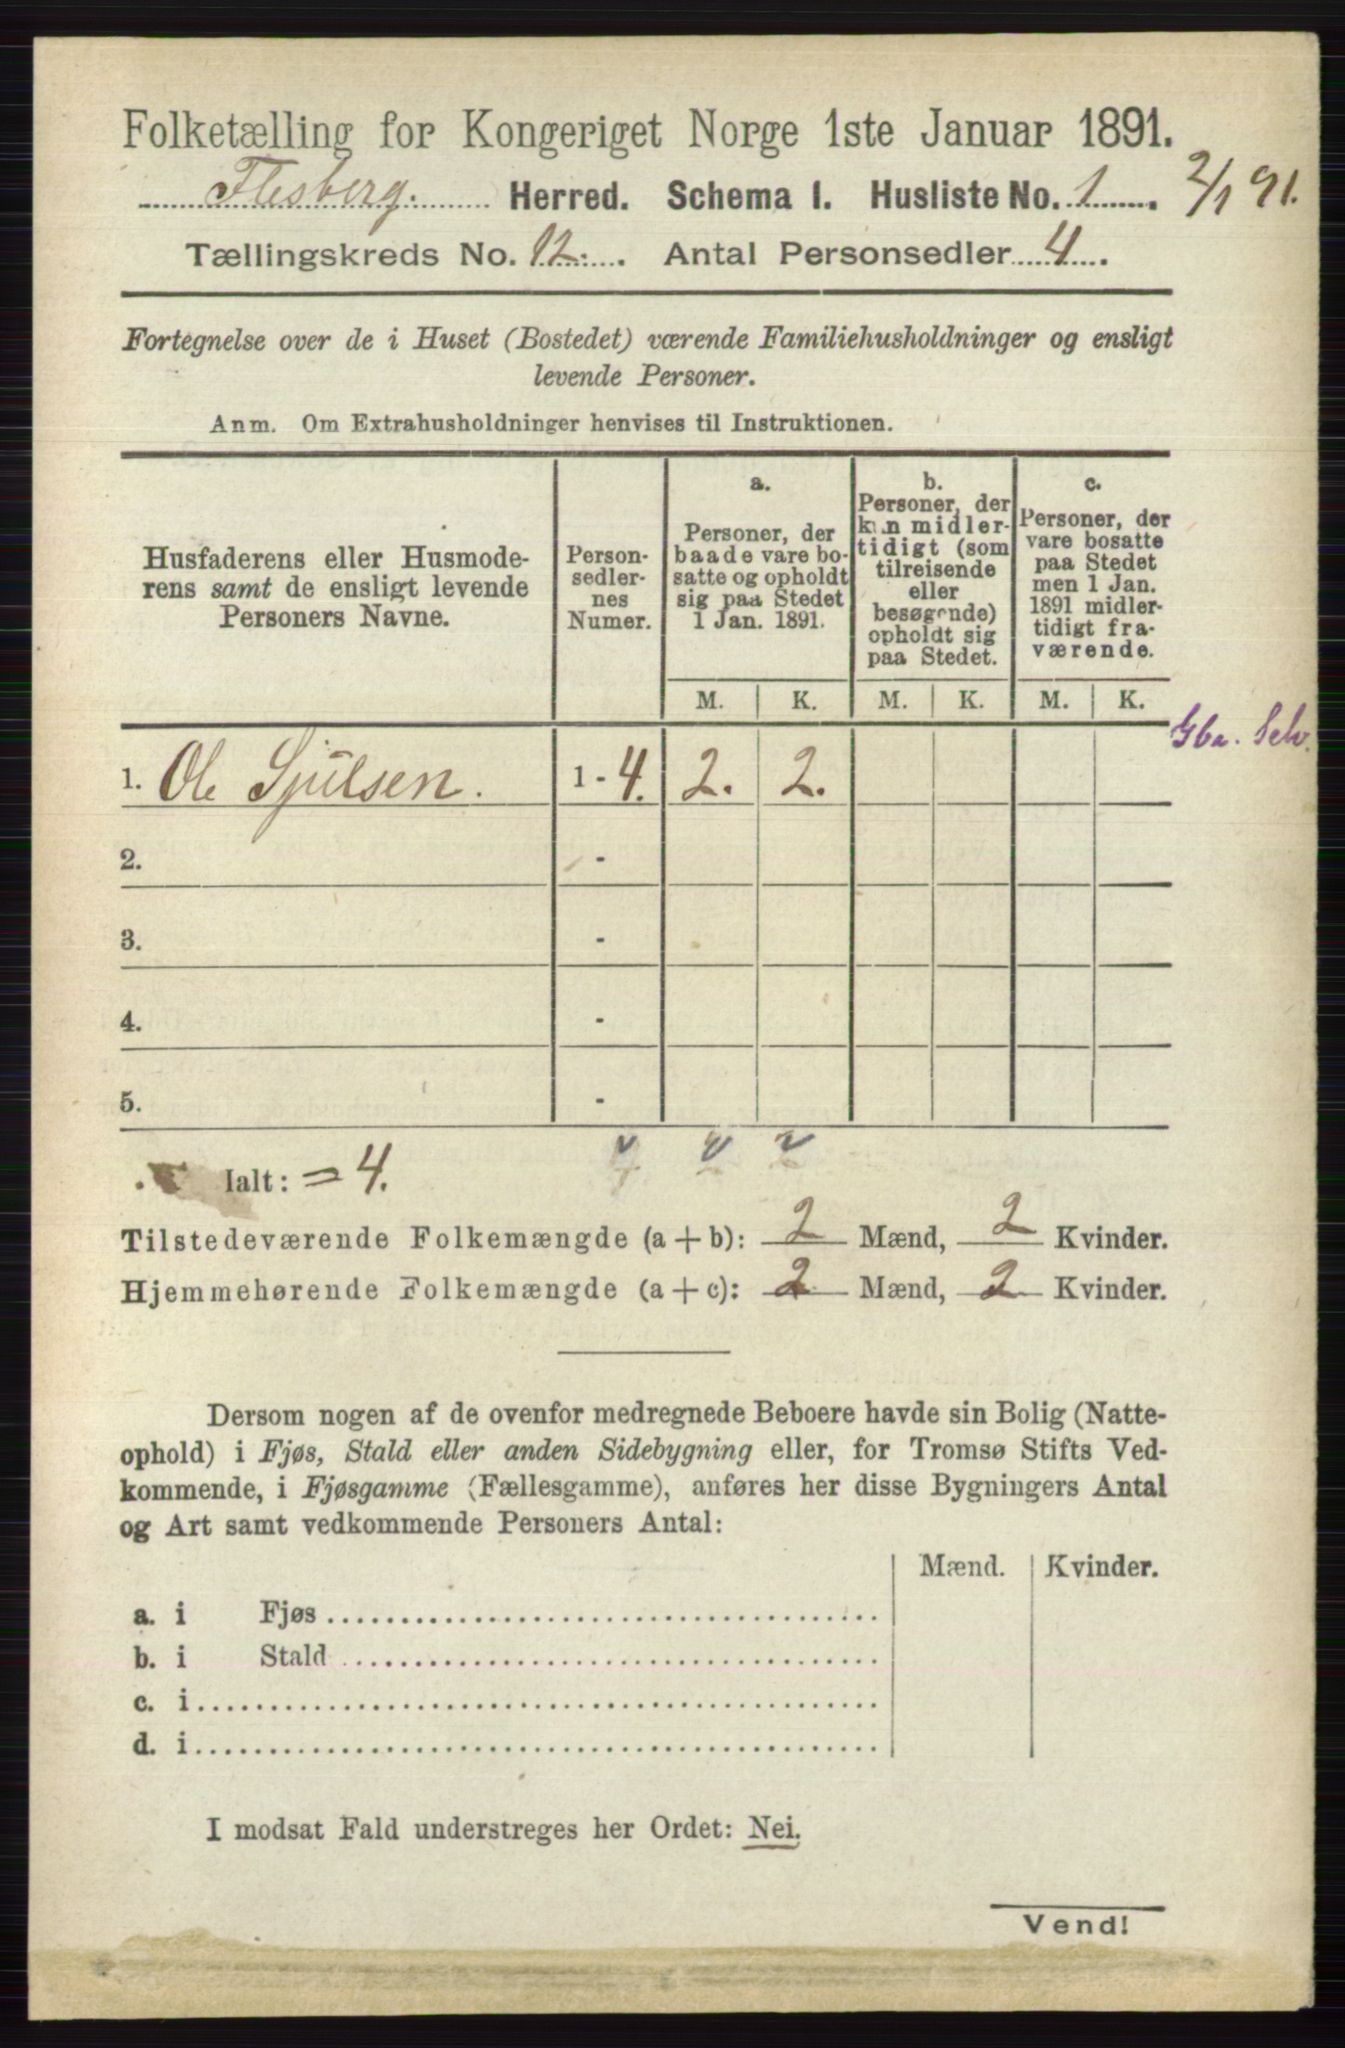 Folketælling for Kongeriget Norge 1ste Januar 1891.
Flesberg. Herred. Schema I. Husliste No. 1. 2/1 91.
Tællingskreds No. 12. Antal Personsedler 4.
Fortegnelse over de i Huset (Bostedet) værende Familiehusholdninger og ensligt
levende Personer.
Anm. Om Extrahusholdninger henvises til Instruktionen.
Husfaderens eller Husmode-
rens samt de ensligt levende
Personers Navne.
Person-
sedler-
nes
Numer.
a.
Personer, der
baade vare bo-
satte og opholdt
sig paa Stedet
1 Jan. 1891.
b.
Personer, der
kun midler-
tidigt (som
tilreisende
eller
besøgende)
opholdt sig
paa Stedet.
c.
Personer, der
vare bosatte
paa Stedet
men 1 Jan.
1891 midler-
tidigt fra-
værende.
M. K. M. K. M. K.
Gba. Selv.
1. Ole Sjulsen. 1 - 4. 2. 2.
2. -
3. -
4. -
5. -
Ialt: = 4.
Tilstedeværende Folkemængde (a + b): 2 Mænd, 2 Kvinder.
Hjemmehørende Folkemængde (a + c): 2 Mænd, 2 Kvinder.
Dersom nogen af de ovenfor medregnede Beboere havde sin Bolig (Natte-
ophold) i Fjøs, Stald eller anden Sidebygning eller, for Tromsø Stifts Ved-
kommende, i Fjøsgamme (Fællesgamme), anføres her disse Bygningers Antal
og Art samt vedkommende Personers Antal:
Mænd. Kvinder.
a. i Fjøs
b. i Stald
c. i
d. i
I modsat Fald understreges her Ordet: Nei.
Vend!